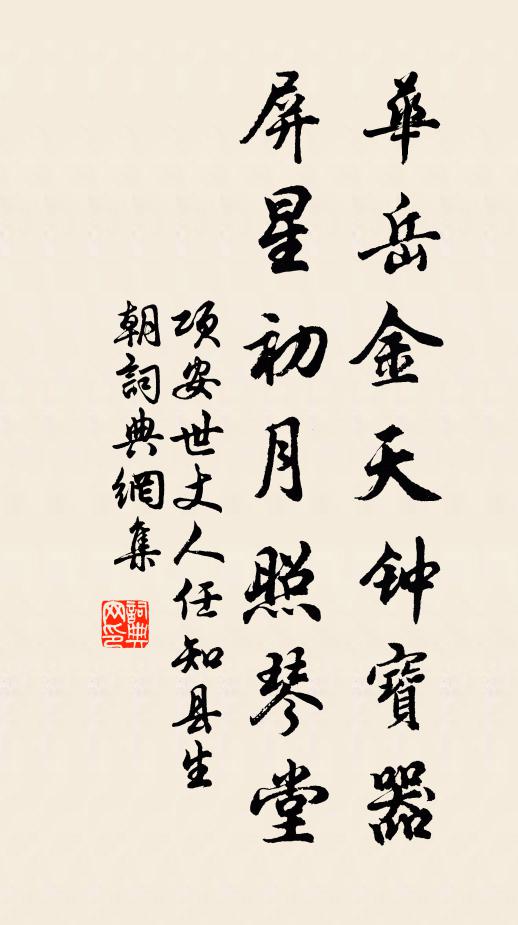 華岳金天钟寶器
屏星初月照琴堂
项安世丈人任知县生
朝詞典網集
詞典网印